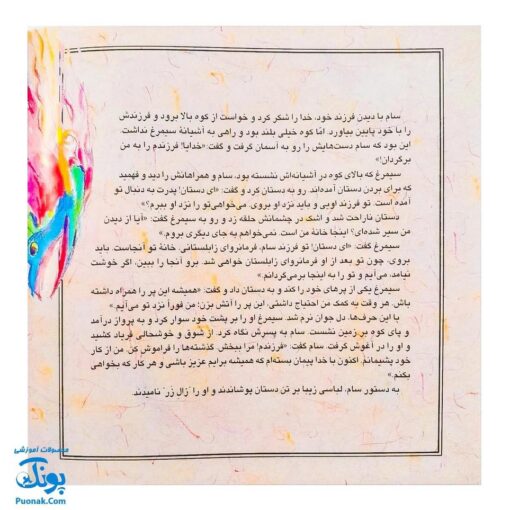 سام با دیدن فرزند خود، خدا را شکر کرد و خواست از کوه بالا برود و فرزندش
را با خود پایین بیاورد. امّا کوه خیلی بلند بود و راهی به آشیانهٔ سیمرغ نداشت.
این بود که سام دست‌هایش را رو به آسمان گرفت و گفت: «خدایا! فرزندم را به من
برگردان!»
سیمرغ که بالای کوه در آشیانه‌اش نشسته بود، سام و همراهانش را دید و فهمید
که برای بردن دستان آمده‌اند. رو به دستان کرد و گفت: «ای دستان! پدرت به دنبال تو
آمده است. تو فرزند اویی و باید نزد او بروی. می‌خواهی تو را نزد او ببرم؟»
دستان ناراحت شد و اشک در چشمانش حلقه زد و رو به سیمرغ گفت: «آیا از دیدن
من سیر شده‌ای؟ اینجا خانهٔ من است. نمی‌خواهم به جای دیگری بروم.»
سیمرغ گفت: «ای دستان! تو فرزند سام، فرمانروای زابلستانی. خانهٔ تو آنجاست. باید
بروی، چون تو بعد از او فرمانروای زابلستان خواهی شد. برو آنجا را ببین، اگر خوشت
نیامد، می‌آیم و تو را به اینجا برمی‌گردانم.»
سیمرغ یکی از پرهای خود را کند و به دستان داد و گفت: «همیشه این پر را همراه داشته
باش. هر وقت به کمک من احتیاج داشتی، این پر را آتش بزن؛ من فوراً نزد تو می‌آیم.»
با این حرف‌ها، دل جوان نرم شد. سیمرغ او را بر پشت خود سوار کرد و به پرواز درآمد
و پای کوه بر زمین نشست. سام به پسرش نگاه کرد. از شوق و خوشحالی فریاد کشید
و او را در آغوش گرفت. سام گفت: «فرزندم! مرا ببخش. گذشته‌ها را فراموش کن. من از کار
خود پشیمانم. اکنون با خدا پیمان بسته‌ام که همیشه برایم عزیز باشی و هر کار که بخواهی
بکنم.»
به دستور سام، لباسی زیبا بر تن دستان پوشاندند و او را "زال زر" نامیدند.
محصولات آموزشی
پونک
Puonak.Com